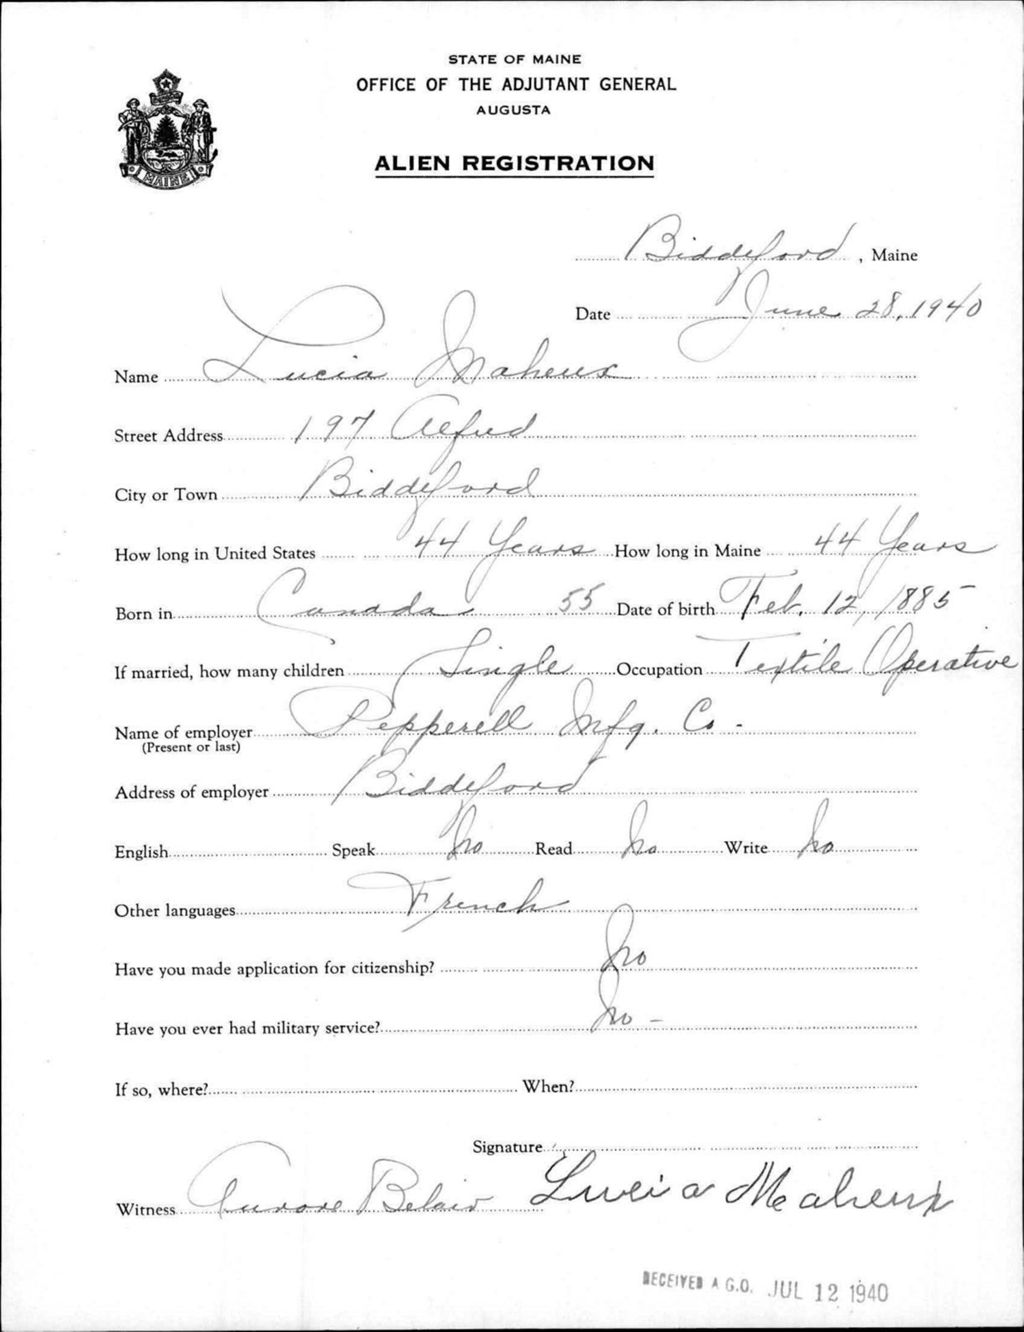 STATE OF MAINE
OFFICE OF THE ADJUTANT GENERAL
AUGUSTA
ALIEN REGISTRATION
MAINE
Biddeford, Maine
Date June 28, 1940
Name Lucia Maheux
Street Address 197 Alfred
City or Town Biddeford
How long in United States 44 Years How long in Maine 44 Years
Born in Canada 55 Date of birth Feb. 12, 1885
If married, how many children Single Occupation Textile Operative
Name of employer Pepperell Mfg. Co -
(Present or last)
Address of employer Biddeford
English Speak No Read No Write No
Other languages French
Have you made application for citizenship? No
Have you ever had military service? No -
If so, where? When?
Signature
Witness Aurore Belair Lucia Maheux
RECEIVED A.G.O. JUL 12 1940